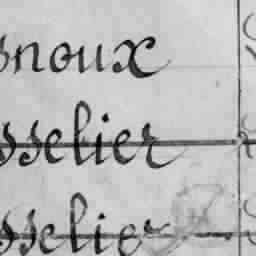 snoux
sselier
sselier